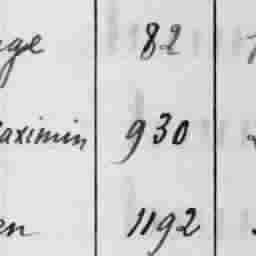 ge 82
aximin 930
en 1192